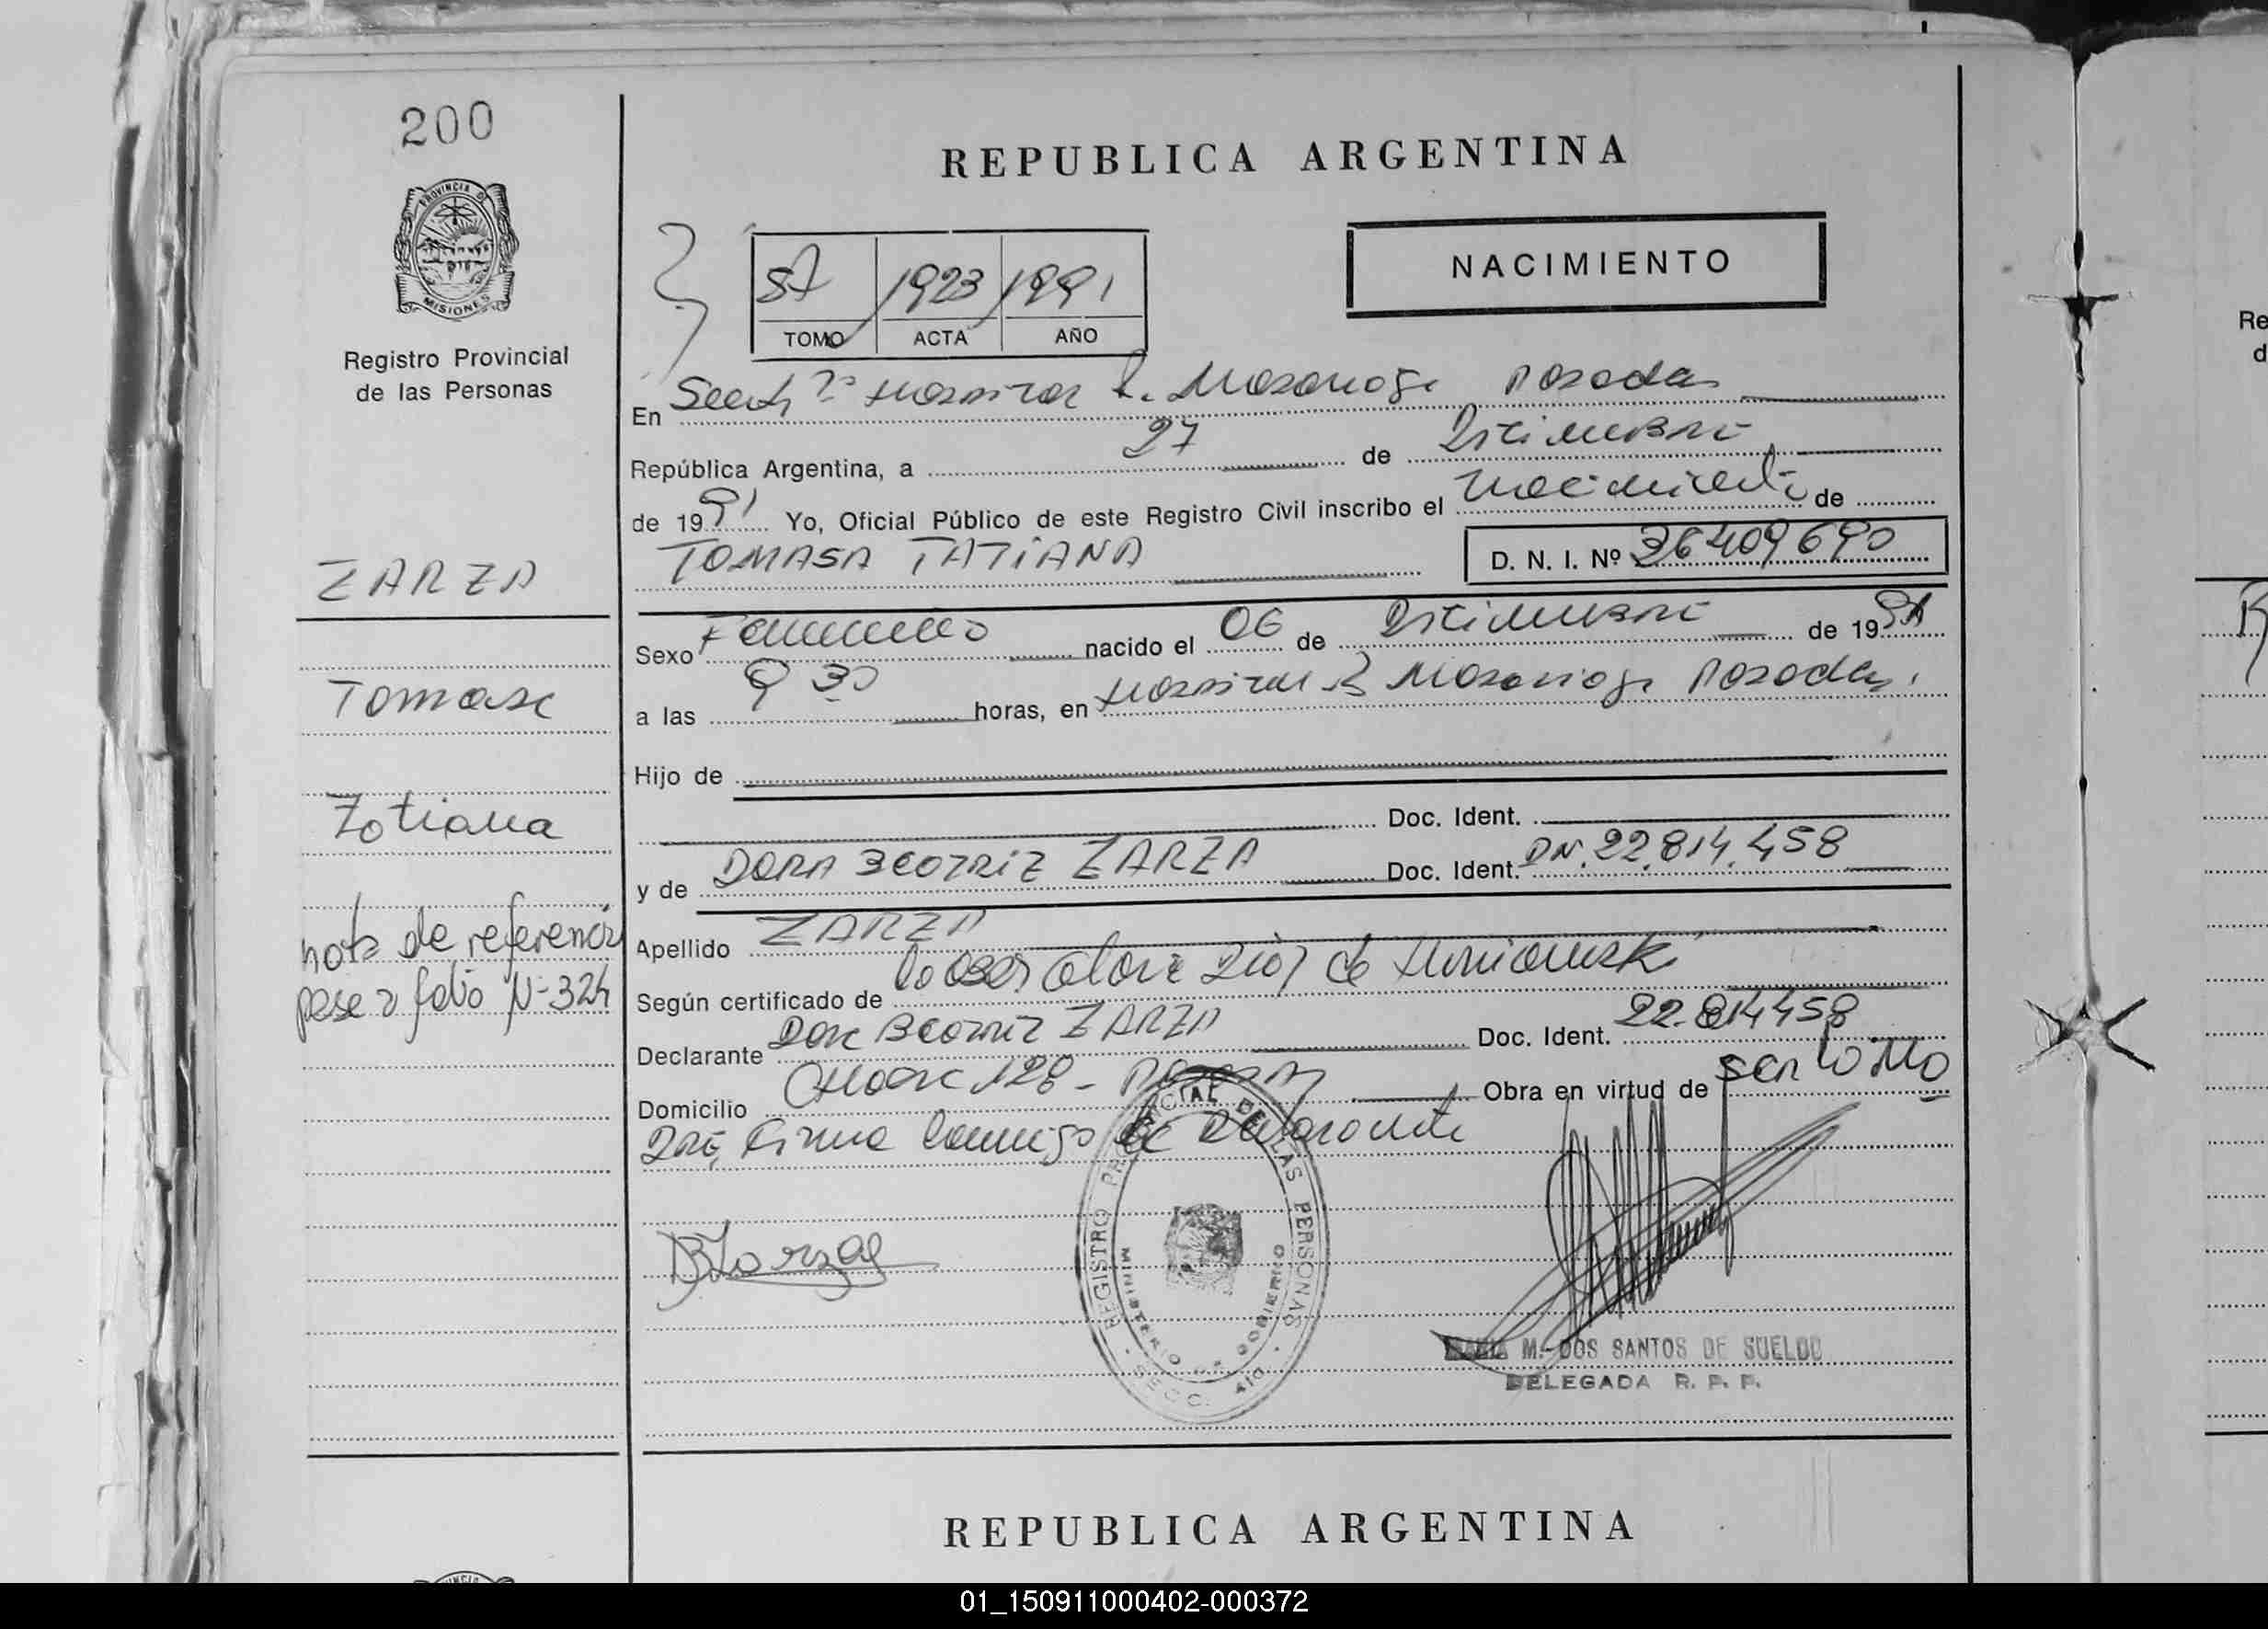 200
PROVINCIA DE
MISIONES
Registro Provincial
de las Personas
ZARZA
Tomasa
Tatiana
nota de referencia
pase a folio Nº 324
REPUBLICA ARGENTINA
NACIMIENTO
1923 1991
TOMO ACTA AÑO
En Secc 7ª Hospital R. Madariaga Posadas
República Argentina, a 27 de Diciembre
de 1991 Yo, Oficial Público de este Registro Civil inscribo el nacimiento de
TOMASA TATIANA D. N. I. Nº 36409690
Sexo Femenino nacido el 06 de Diciembre de 1991
a las 9 30 horas, en Hospital R Madariaga Posadas.
Hijo de
Doc. Ident.
y de DORA BEATRIZ ZARZA Doc. Ident. DN. 22.814.458
Apellido ZARZA
Según certificado de
Declarante Dora BEATRIZ ZARZA Doc. Ident. 22.814458
Domicilio 128 - Posadas Obra en virtud de ser la
Firma conmigo la Declarante
BZarza
REGISTRO PROVINCIAL DE LAS PERSONAS
MINISTERIO DE GOBIERNO
SECC.
MARIA M. DOS SANTOS DE SUELDO
DELEGADA R. P. P.
REPUBLICA ARGENTINA
Re
d
01_150911000402-000372